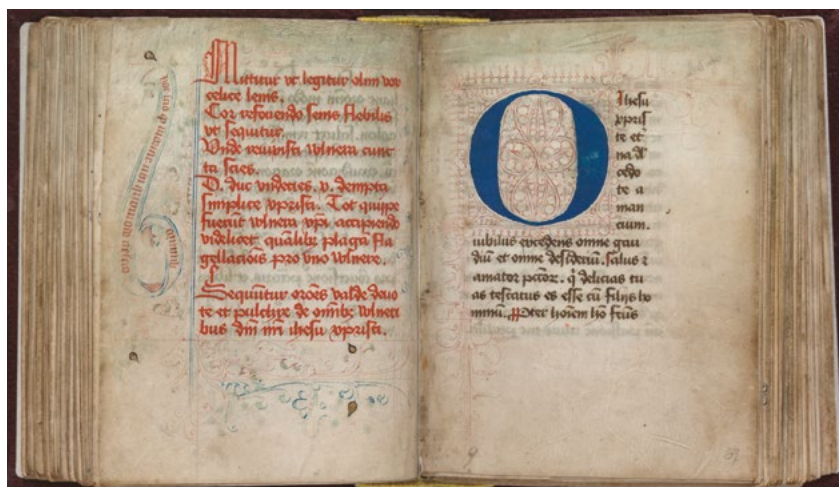 Mittitur vt legitur olim vox
celice lenis.
Cor refouendo senis flebilis
vt sequitur.
Unde reuixisti wlnera cunc
ta scies.
D. duc vndecies. v. dempta
simplice vpristi. Tot quipe
fuerūt wlnera vpi accipiendo
videlicet qualibꝫ plagā fla
gellacōis pro vno wlnere.
Sequūtur orōes valde deuo
te et pulchre de omībꝫ wlneri
bus dnī nrī ihesu vpristi.
O Ihesu
vpris
te et
na dl
cedo
te a
man
cium.
iubilus excedens omne gau
diū et omne desideriū. salus ꝛ
amator pctoꝝ. q̇ delicias tu
as testatus es esse cū filijs ho
minū. Pter hoīem ho fcūs